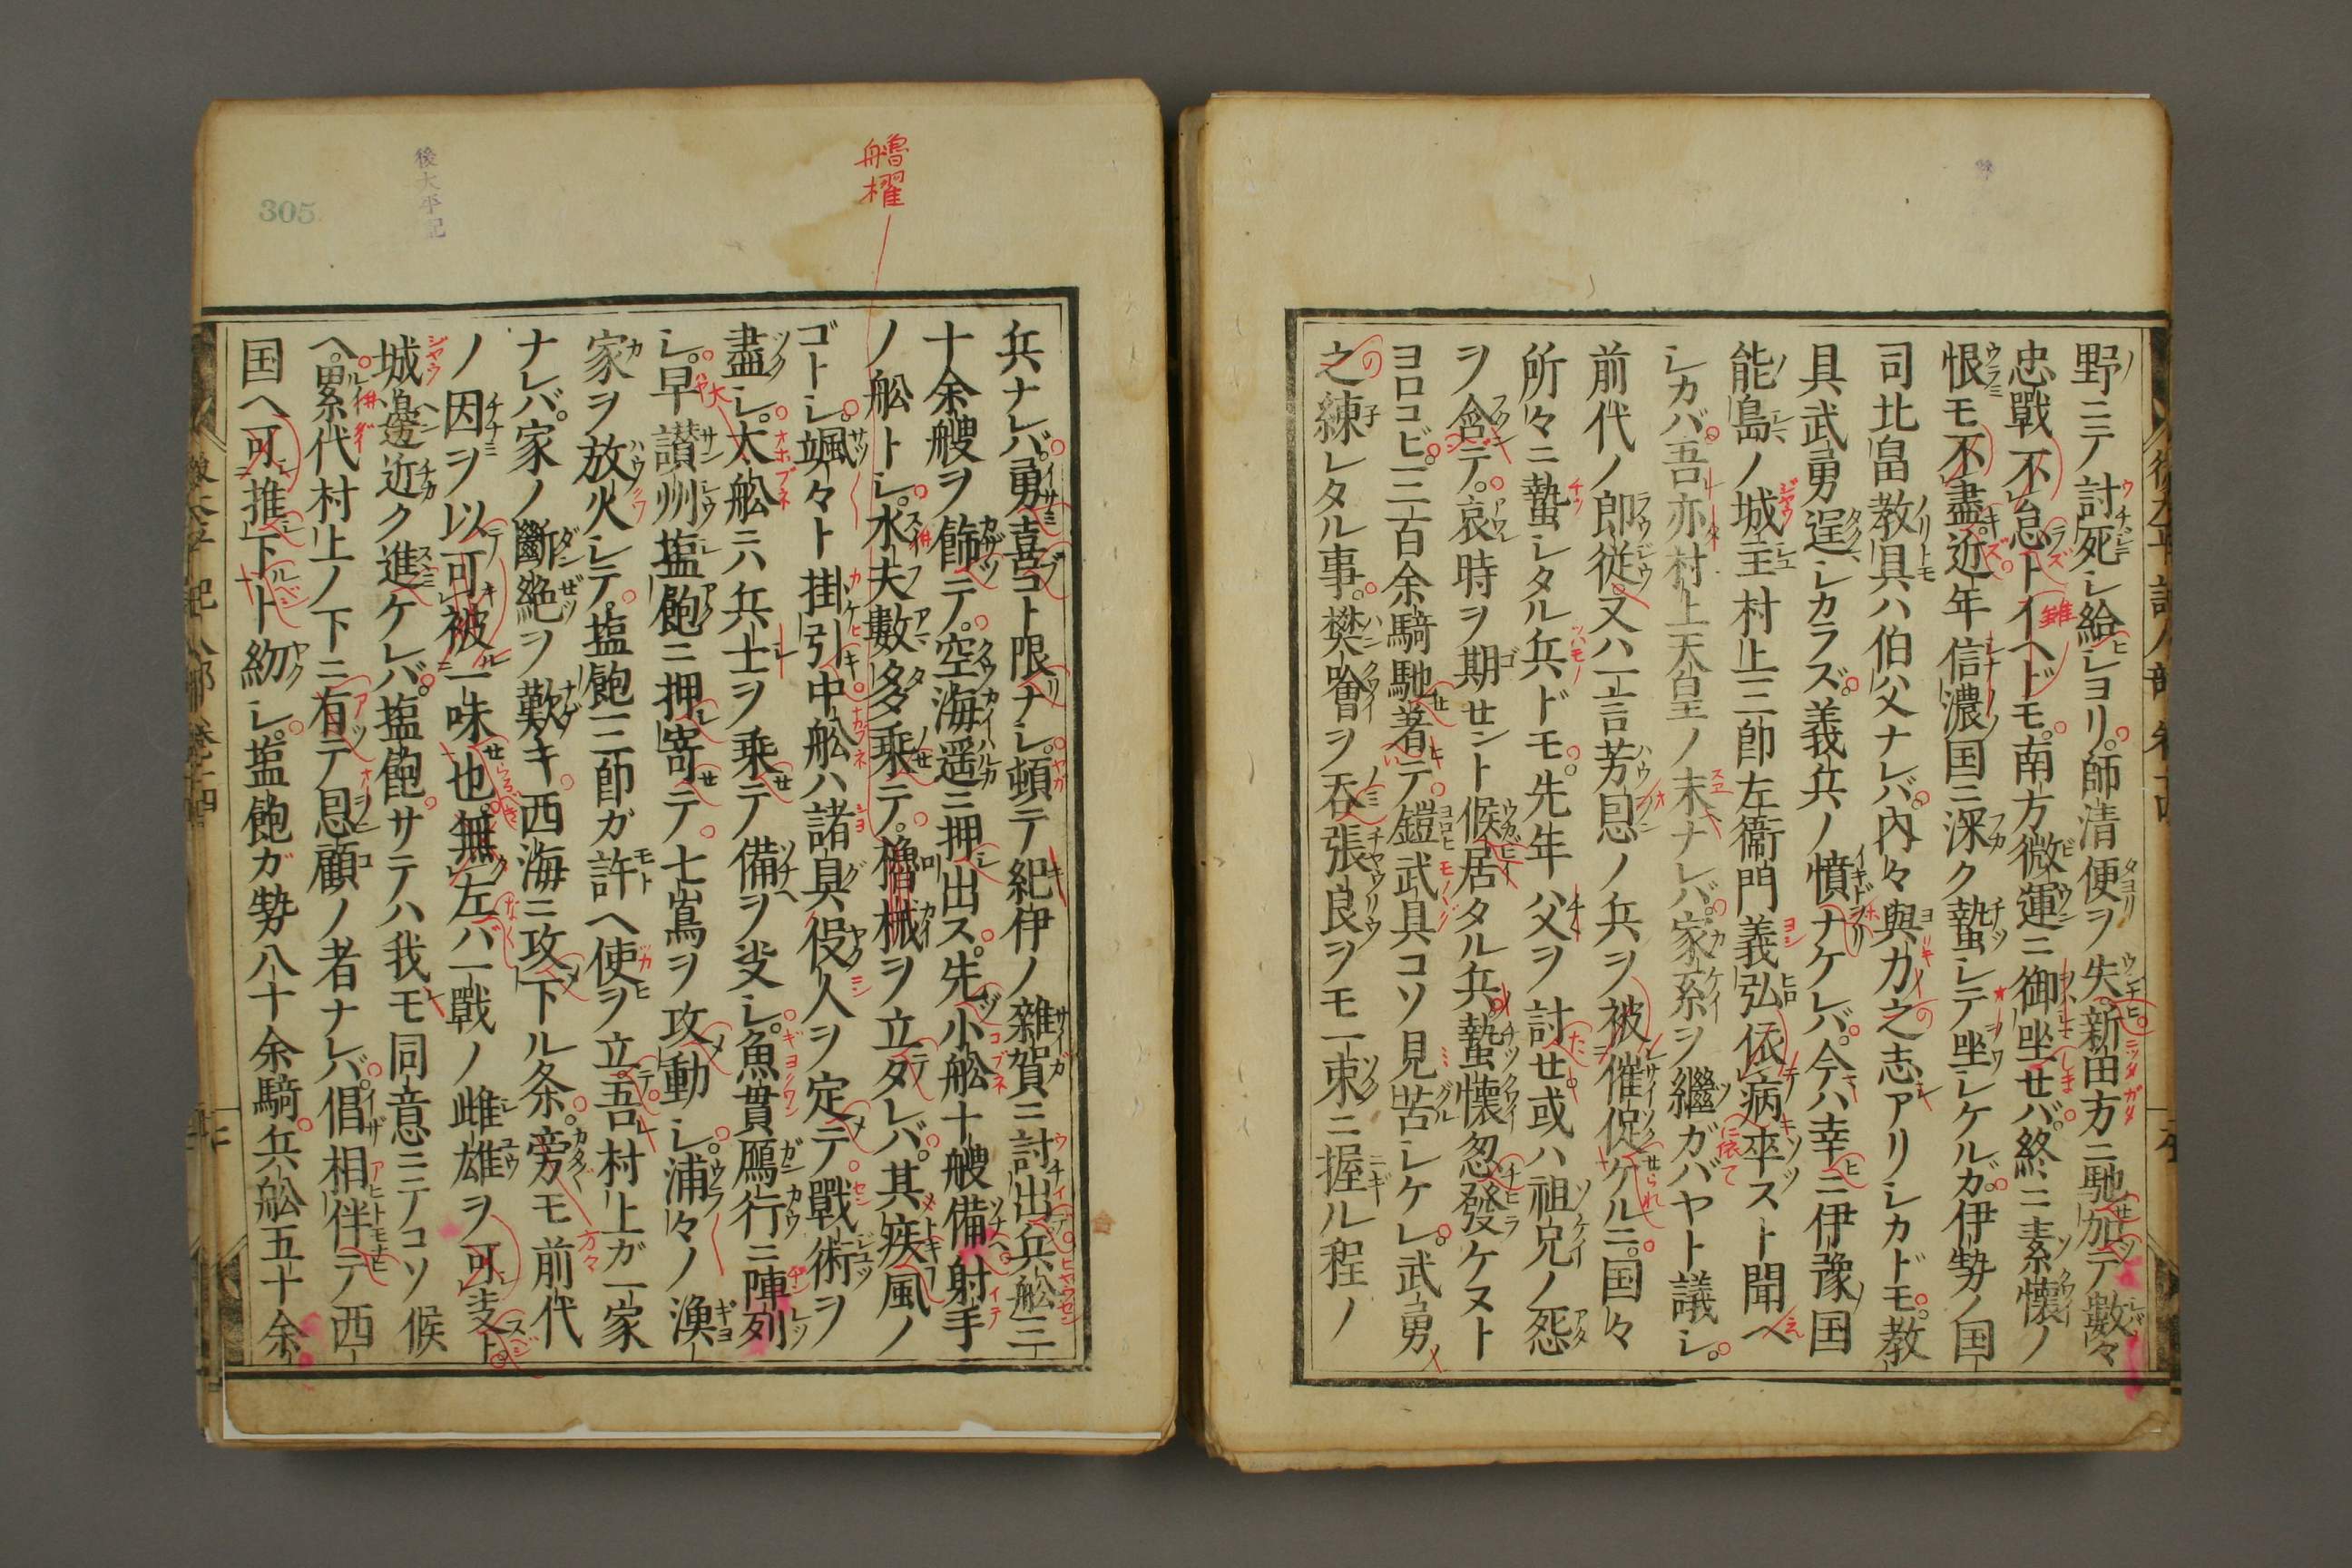 野ニテ討死シ給シヨリ。師清便ヲ失。新田方ニ馳加テ數々
忠戰不怠トイヘドモ。南方微運ニ御坐セバ。終ニ素懐ノ
恨モ不盡。近年信濃国ニ深ク蟄シテ坐シケルガ。伊勢ノ国
司北畠教具ハ伯父ナレバ。内々與力之志アリシカドモ。教
具武勇逞シカラズ。義兵ノ憤ナケレバ。今ハ幸ニ伊豫国
能島ノ城主村上三郎左衞門義弘依病卒スト聞ヘ
シカバ。吾亦村上天皇ノ末ナレバ。家系ヲ繼ガバヤト議シ。
前代ノ郎従。又ハ一言芳恩ノ兵ヲ被催促ケルニ。国々
所々ニ蟄シタル兵ドモ。先年父ヲ討セ或ハ祖兄ノ怨
ヲ含テ。哀時ヲ期セント候居タル兵。蟄懐忽發ケヌト
ヨロコビ。三百余騎馳著テ。鎧武具コソ見苦シケレ。武勇
之練レタル事。樊噲ヲ呑張良ヲモ一束ニ握ル程ノ
兵ナレバ。勇喜コト限ナシ。頓テ紀伊ノ雜賀ニ討出兵舩三
十余艘ヲ飾テ。空海遥ニ押出ス。先小舩十艘備射手
ノ舩トシ。水夫數多乘テ。櫓械ヲ立タレバ。其疾風ノ
ゴトシ。颯々ト掛引。中舩ハ諸具役人ヲ定テ。戰術ヲ
盡シ。大舩ニハ兵士ヲ乘テ備ヲ𡚒シ。魚貫鴈行ニ陣列
シ。早讃州塩飽ニ押寄テ。七嶌ヲ攻動シ。浦々ノ漁
家ヲ放火シテ。塩飽三郎ガ許ヘ使ヲ立。吾村上ガ一家
ナレバ。家ノ斷絶ヲ歎キ。西海ニ攻下ル条。旁モ前代
ノ因ヲ以可被一味也。無左バ一戰ノ雌雄ヲ可支ト
城邊近ク進ケレバ。塩飽サテハ我モ同意ニテコソ候
ヘ。累代村上ノ下ニ有テ恩顧ノ者ナレバ。倡相伴テ西
国ヘ可推下ト約シ。塩飽ガ勢八十余騎。兵舩五十余
艪櫂
後太平記
305